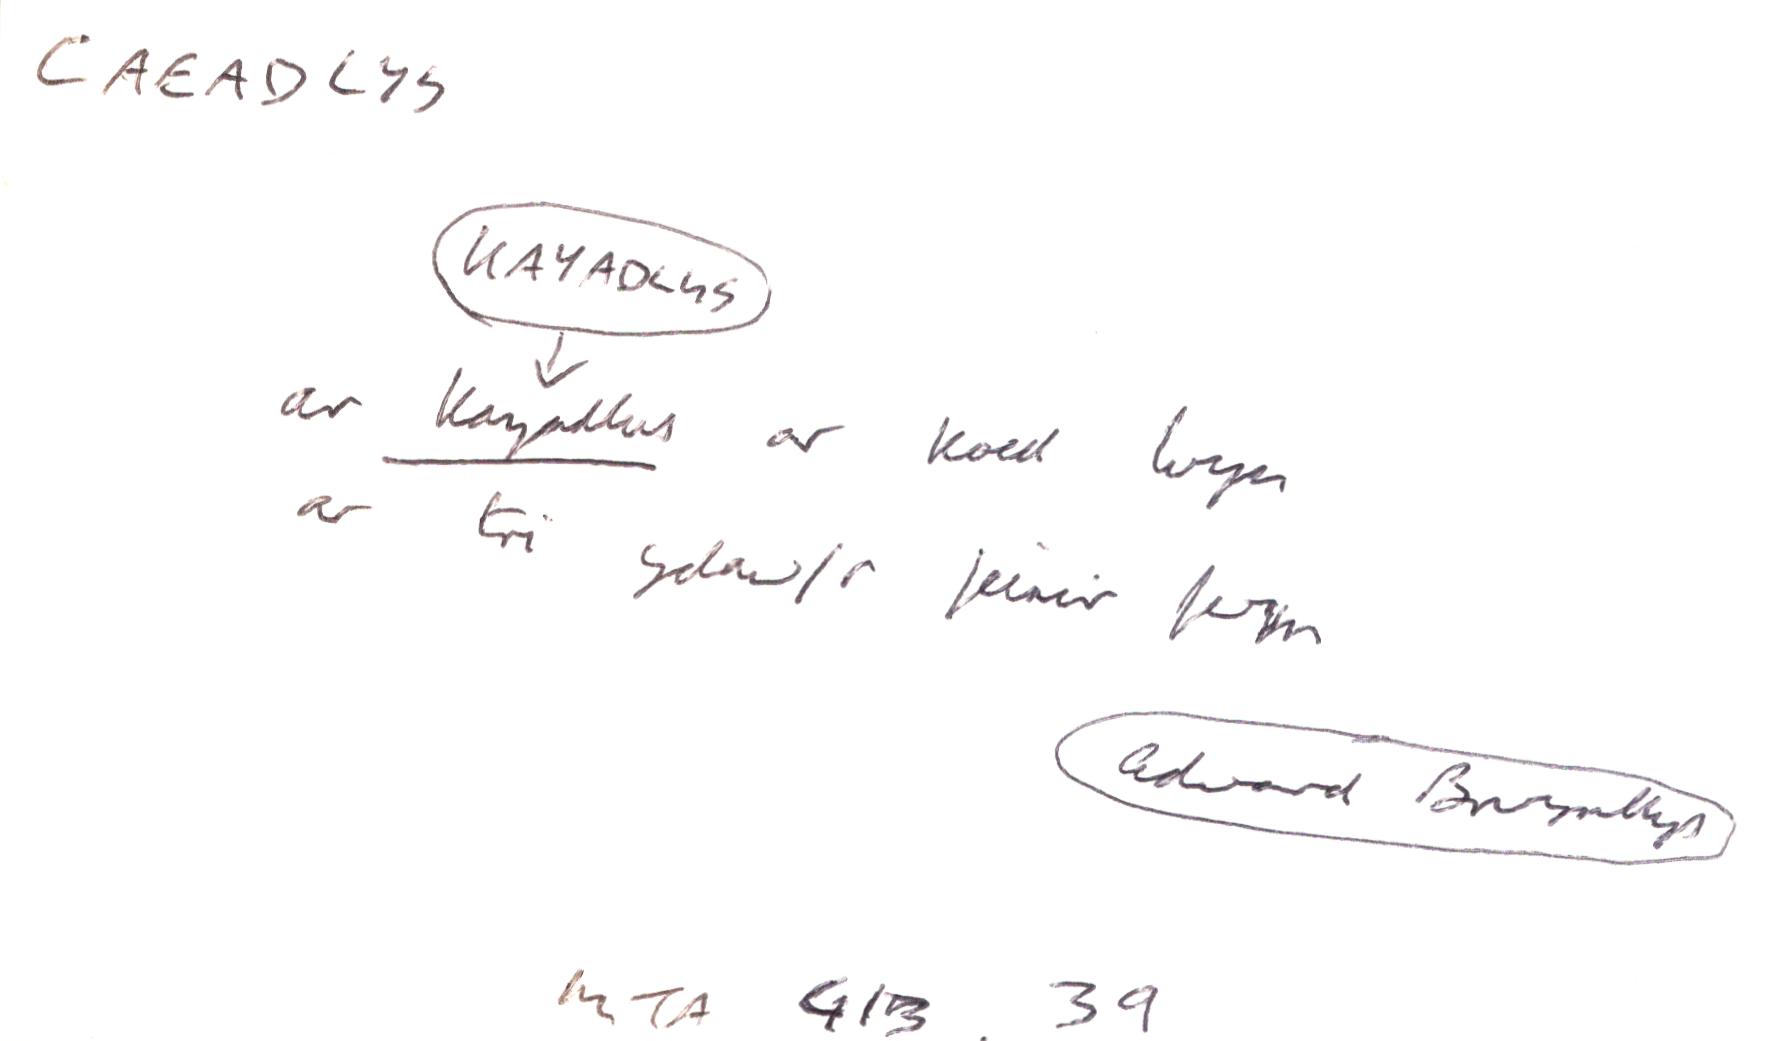 CAEADLYS
KAYADLYS
ar kayadlus ar koed
ar tri ydaw/r
Edward Brwynllys
MTA 413. 39